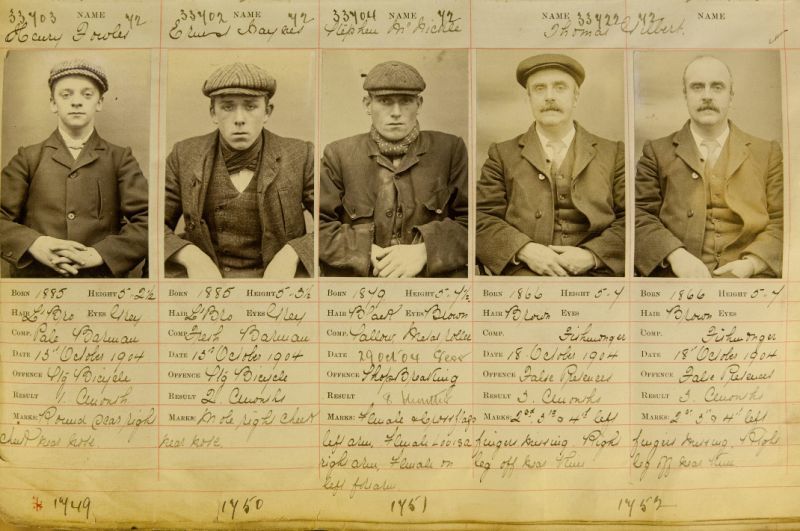 33703 NAME 72
Henry Fowler
33702 NAME 72
Ernest Haynes
33704 NAME 72
Stephen McNickle
NAME 33722 72
Thomas Gilbert.
NAME
BORN 1885 HEIGHT 5-2½
HAIR Lt Bro EYES Grey
COMP. Pale Barman
DATE 15th October 1904
OFFENCE Stg Bicycle
RESULT 1. Cmonth
MARKS: Round scar right
cheek near nose.
1749
BORN 1885 HEIGHT 5-3½
HAIR Lt Bro EYES Grey
COMP. Fresh Barman
DATE 15th October 1904
OFFENCE Stg Bicycle
RESULT 2. Cmonths
MARKS: Mole right cheek
near nose.
1750
BORN HEIGHT 5-4½
HAIR Black EYES Brown
COMP. Sallow
DATE 29 Oct 04
OFFENCE Shop Breaking
RESULT
MARKS: Female
left arm, Female
right arm, Female on
left forearm
1751
BORN 1866 HEIGHT 5-4
HAIR Brown EYES
COMP. Fishmonger
DATE 18. October 1904
OFFENCE False Pretences
RESULT 3. Cmonths
MARKS: 2nd 3rd & 4th left
fingers missing. Right
leg off near knee
BORN 1866 HEIGHT 5-4
HAIR Brown EYES
COMP. Fishmonger
DATE 18th October 1904
OFFENCE False Pretences
RESULT 3. Cmonths
MARKS: 2nd 3rd & 4th left
fingers missing, & Right
leg off near knee
1752